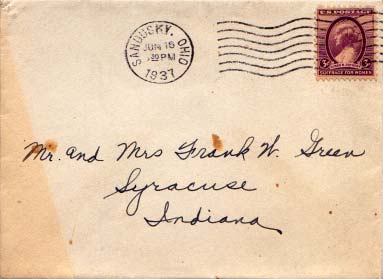 SANDUSKY, OHIO
JUN 16
PM
1937
U.S. POSTAGE
3¢ 3¢
SUFFRAGE FOR WOMEN
Mr. and Mrs Frank W. Green
Syracuse
Indiana